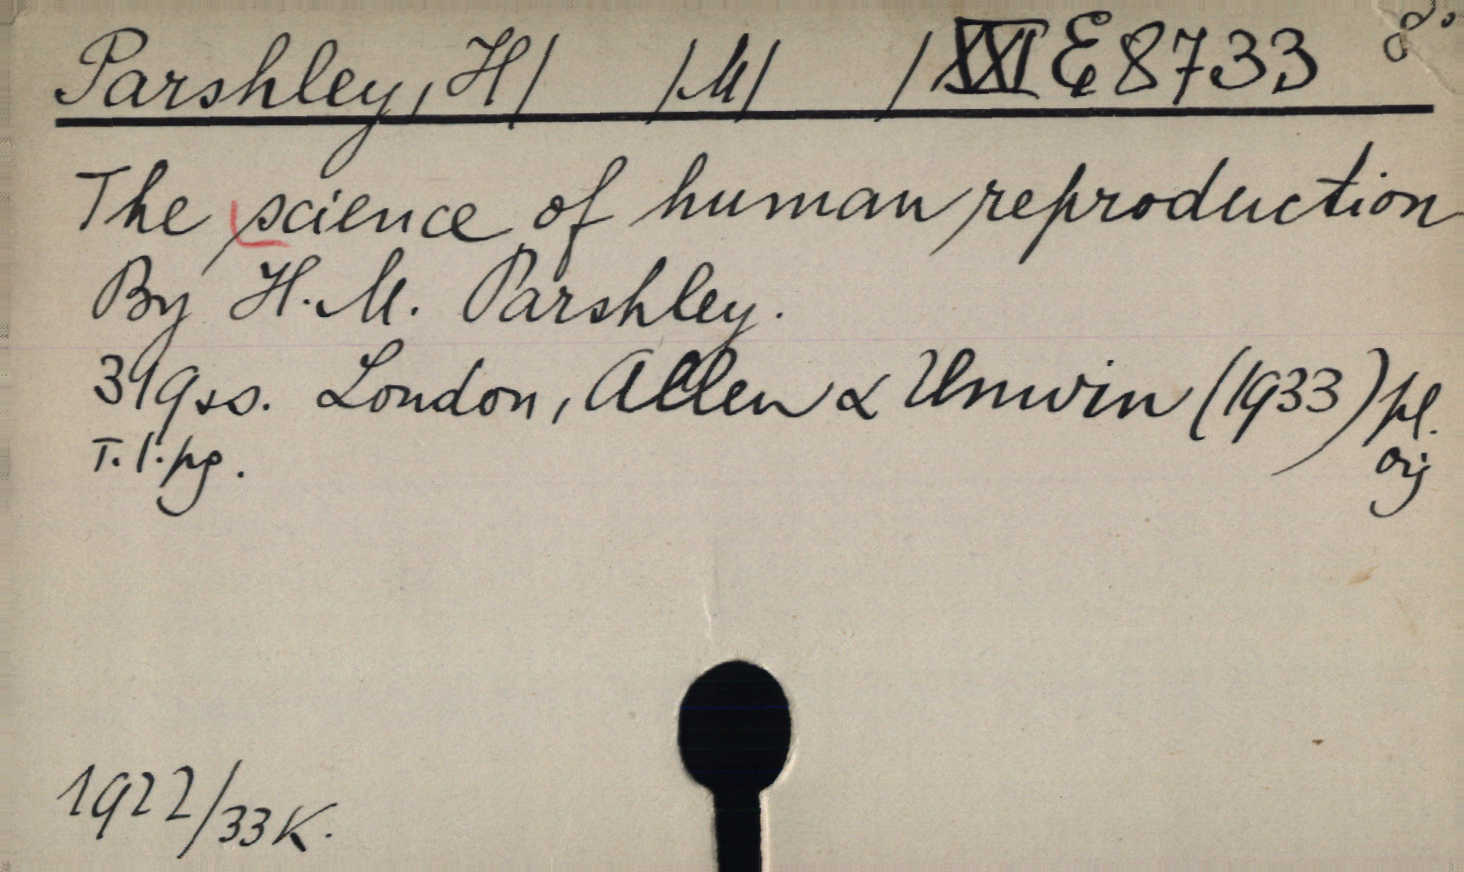 Parshley, H/ /M/ / XXI E 8733 8°
The science of human reproduction
By H. M. Parshley.
319 ss. London, Allen & Unwin (1933) pl.
T. l. pg. orig
1922/33 K.